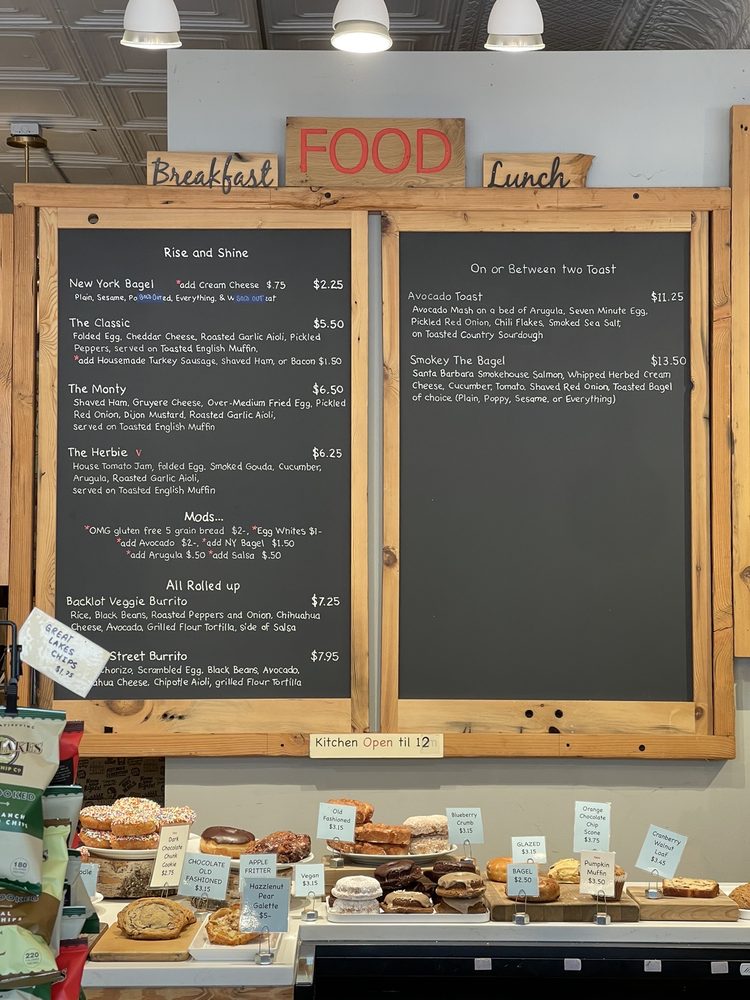 FOOD
Breakfast
Lunch
Rise and Shine
New York Bagel *add Cream Cheese $.75 $2.25
Plain, Sesame, Po SOLD OUT ed, Everything, & W SOLD OUT eat
The Classic $5.50
Folded Egg, Cheddar Cheese, Roasted Garlic Aioli, Pickled
Peppers, served on Toasted English Muffin,
*add Housemade Turkey Sausage, Shaved Ham, or Bacon $1.50
The Monty $6.50
Shaved Ham, Gruyere Cheese, Over-Medium Fried Egg, Pickled
Red Onion, Dijon Mustard, Roasted Garlic Aioli,
served on Toasted English Muffin
The Herbie V $6.25
House Tomato Jam, folded Egg, Smoked Gouda, Cucumber,
Arugula, Roasted Garlic Aioli,
served on Toasted English Muffin
Mods...
*OMG gluten free 5 grain bread $2-, *Egg Whites $1-
*add Avocado $2-, *add NY Bagel $1.50
*add Arugula $.50 *add Salsa $.50
All Rolled up
Backlot Veggie Burrito $7.25
Rice, Black Beans, Roasted Peppers and Onion, Chihuahua
Cheese, Avocado, Grilled Flour Tortilla, side of Salsa
Street Burrito $7.95
Chorizo, Scrambled Egg, Black Beans, Avocado,
ahua Cheese, Chipotle Aioli, grilled Flour Tortilla
On or Between two Toast
Avocado Toast $11.25
Avocado Mash on a bed of Arugula, Seven Minute Egg,
Pickled Red Onion, Chili Flakes, Smoked Sea Salt,
on Toasted Country Sourdough
Smokey The Bagel $13.50
Santa Barbara Smokehouse Salmon, Whipped Herbed Cream
Cheese, Cucumber, Tomato, Shaved Red Onion, Toasted Bagel
of choice (Plain, Poppy, Sesame, or Everything)
Kitchen Open til 12
GREAT
LAKES
CHIPS
$1.75
AKES
HIP CO
OOKED
ANCH
CHIPS
180
220
Dark
Chocolate
Chunk
Cookie
$2.75
CHOCOLATE
OLD
FASHIONED
$3.15
APPLE
FRITTER
Hazzlenut
Pear
Galette
$5-
Vegan
$3.15
Old
Fashioned
$3.15
Blueberry
Crumb
$3.15
GLAZED
$3.15
BAGEL
$2.50
Orange
Chocolate
Chip
Scone
$3.75
Pumpkin
Muffin
$3.50
Cranberry
Walnut
Loaf
$3.45